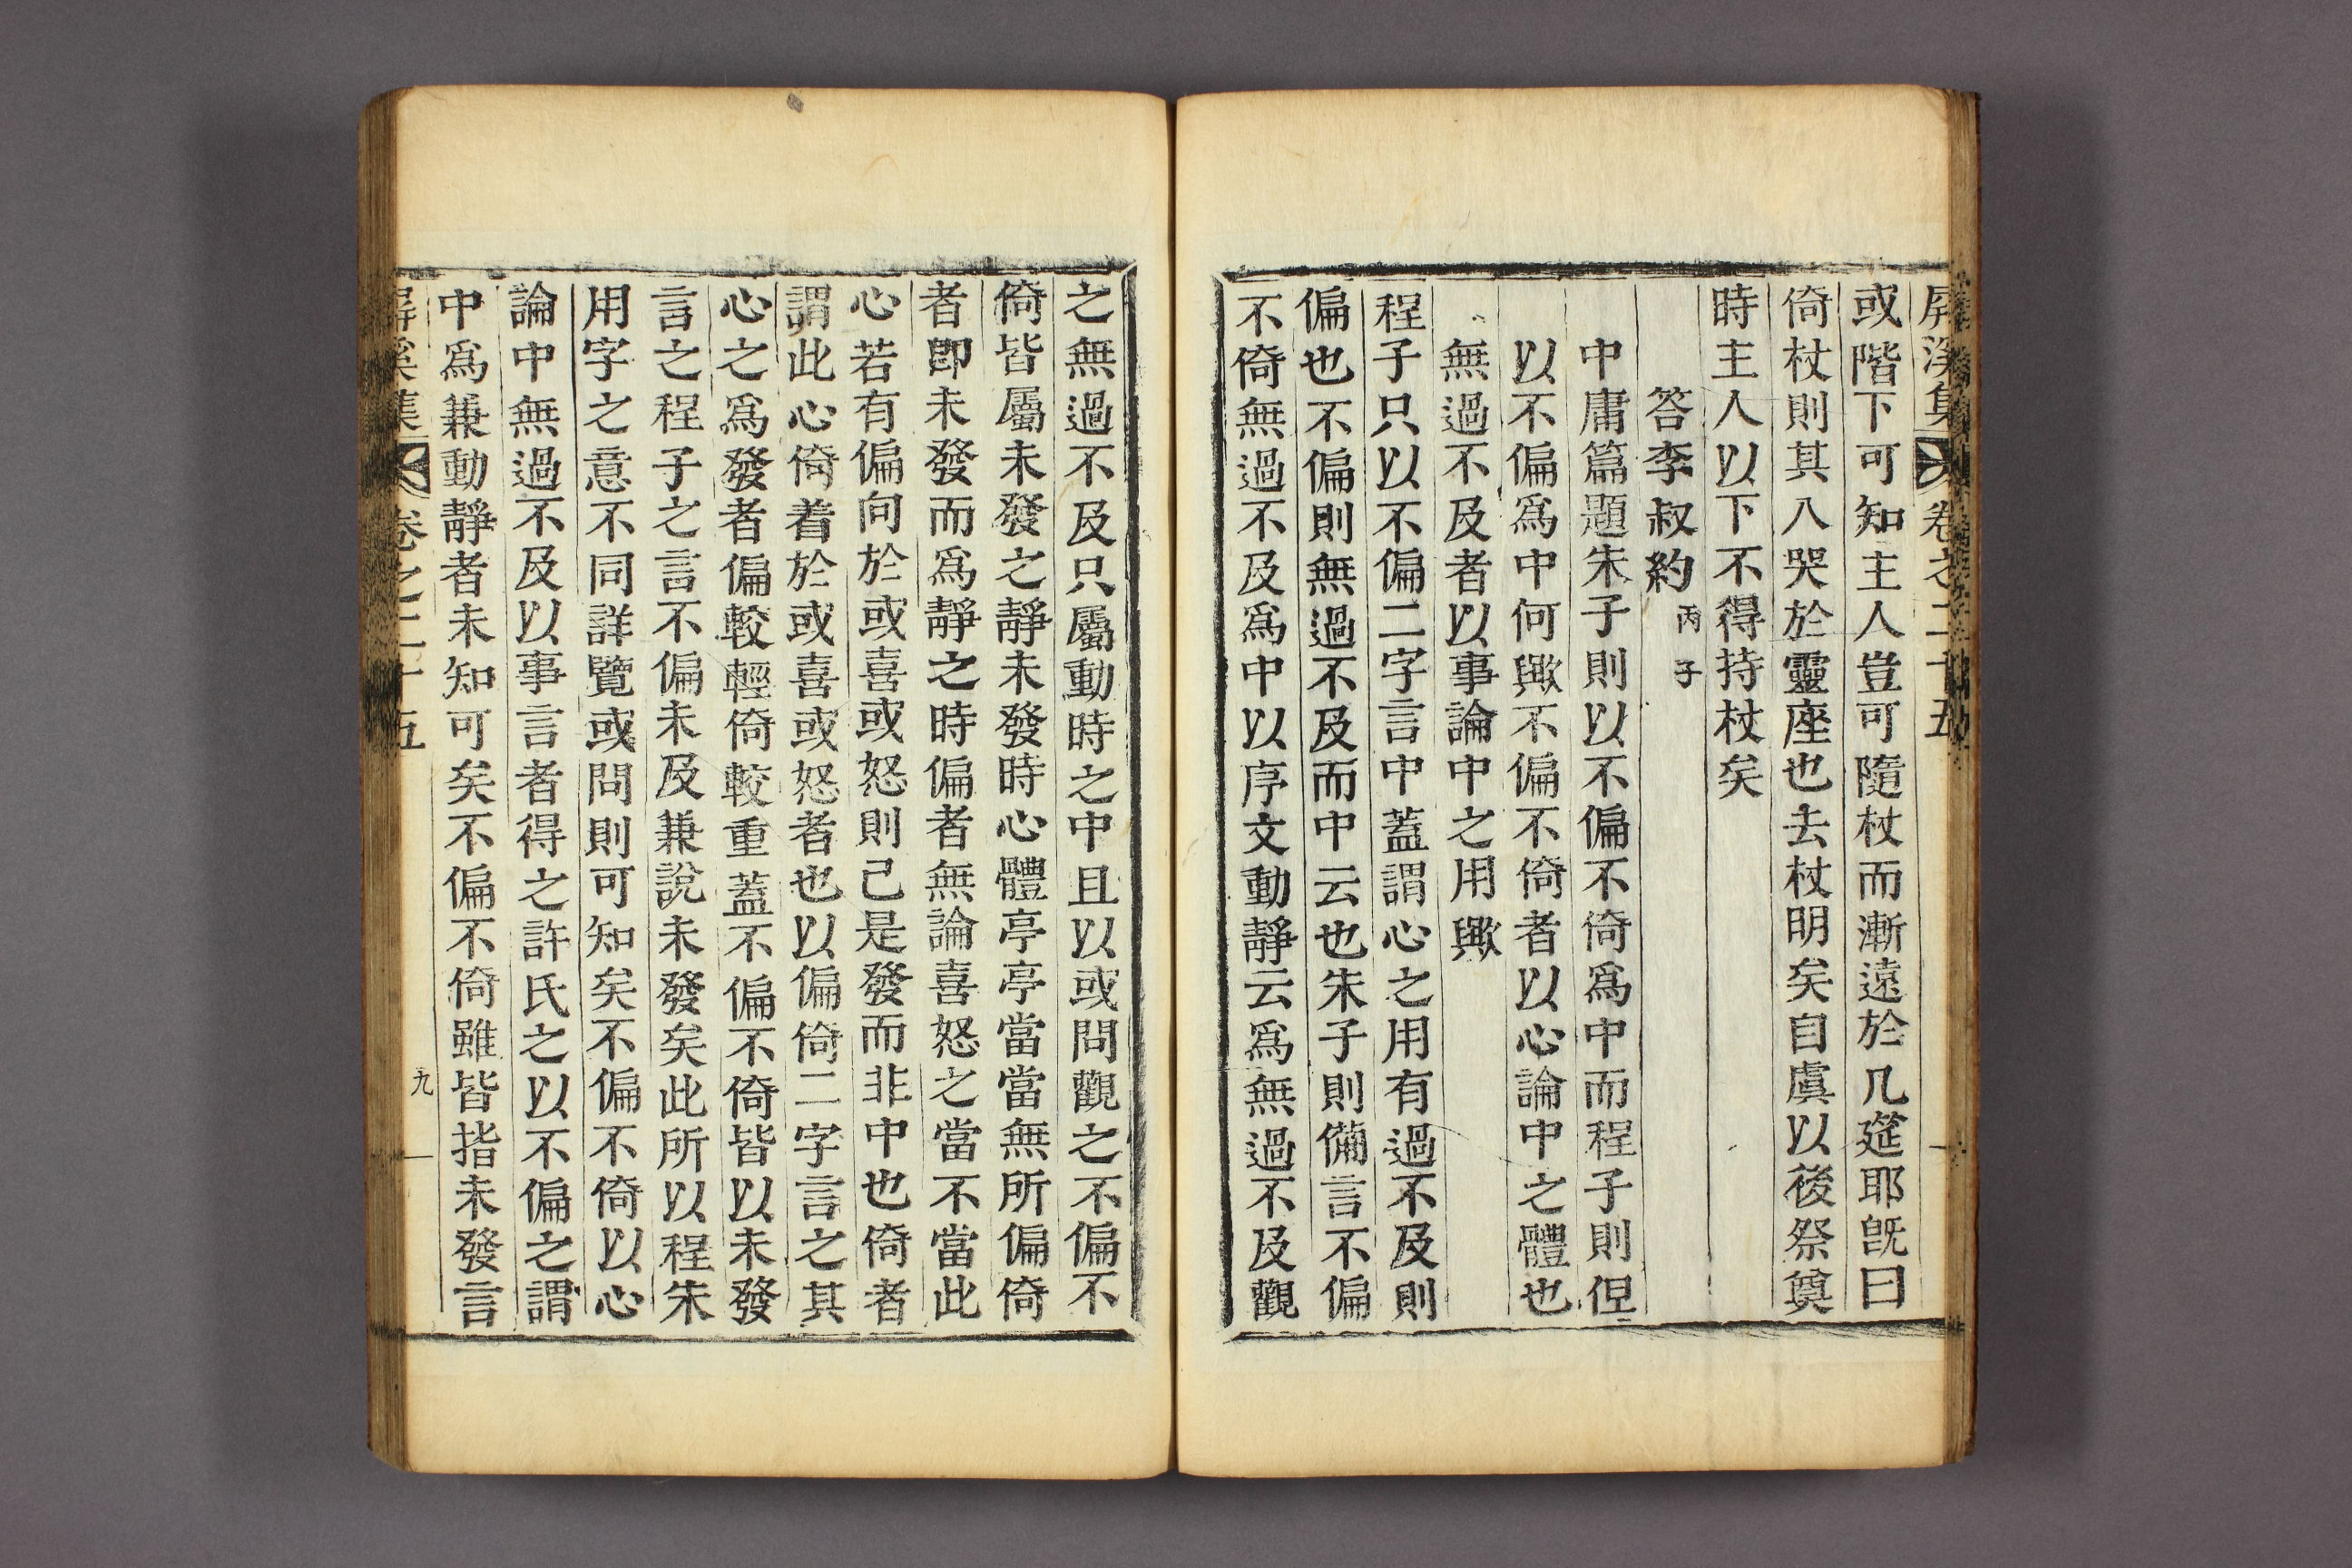 屛溪集 卷之二十五
或階下可知主人豈可隨杖而漸遠於几筵耶旣曰
倚杖則其八哭於靈座也去杖明矣自虞以後祭奠
時主人以下不得持杖矣
答李叔約 丙子
中庸篇題朱子則以不偏不倚爲中而程子則但
以不偏爲中何歟不偏不倚者以心論中之體也
無過不及者以事論中之用歟
程子只以不偏二字言中蓋謂心之用有過不及則
偏也不偏則無過不及而中云也朱子則備言不偏
不倚無過不及爲中以序文動靜云爲無過不及觀
之無過不及只屬動時之中且以或問觀之不偏不
倚皆屬未發之靜未發時心體亭亭當當無所偏倚
者卽未發而爲靜之時偏者無論喜怒之當不當此
心若有偏向於或喜或怒則已是發而非中也倚者
謂此心倚着於或喜或怒者也以偏倚二字言之其
心之爲發者偏較輕倚較重蓋不偏不倚皆以未發
言之程子之言不偏未及兼說未發矣此所以程朱
用字之意不同詳覽或問則可知矣不偏不倚以心
論中無過不及以事言者得之許氏之以不偏之謂
中爲兼動靜者未知可矣不偏不倚雖皆指未發言
屛溪集 卷之二十五 九